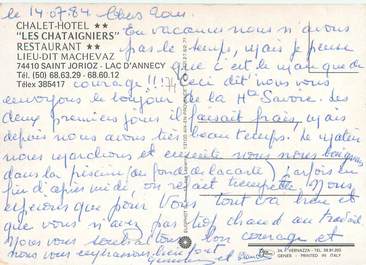 le 14.07.84 Chers Tous.
CHALET-HOTEL ★★
"LES CHATAIGNIERS"
RESTAURANT ★★
LIEU-DIT MACHEVAZ
74410 SAINT JORIOZ - LAC D'ANNECY
Tél. (50) 68.63.29 - 68.60.12
Télex 385417
En vacances nous n'avons
pas le temps, mais je pense
que c'est le manque de
courage!!! Ceci dit nous vous
envoyons le bonjour de la Hte Savoie. Les
deux premiers jours il faisait frais, mais
depuis nous avons très beau temps. Le matin
nous marchons et ensuite nous nous baignons
dans la piscine (au fond de la carte) parfois en
fin d'après midi, on refait trempette. Nous
espérons que pour vous tout va bien et
que vous n'avez pas trop chaud au travail
Nous vous souhaitons bon courage et
nous vous embrassons bien fort
GENÈS - PRINTED IN ITALY